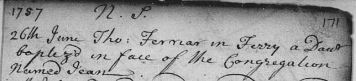 1757 N. S. 171
26th June Tho: Ferriar in Ferry a Daur
baptiz'd in face of the Congregation
Named Jean